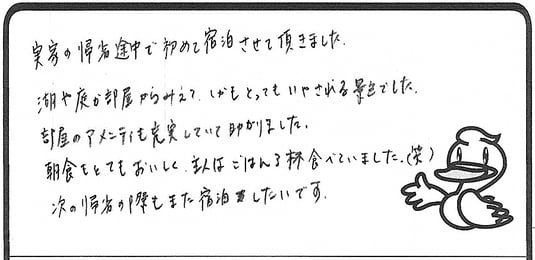 実家の帰省途中で初めて宿泊させて頂きました。
湖や庭が部屋からみえて、しかもとってもいやされる景色でした。
部屋のアメニティも充実していて助かりました。
朝食もとてもおいしく、主人はごはん3杯食べていました。(笑)
次の帰省の際もまた宿泊したいです。